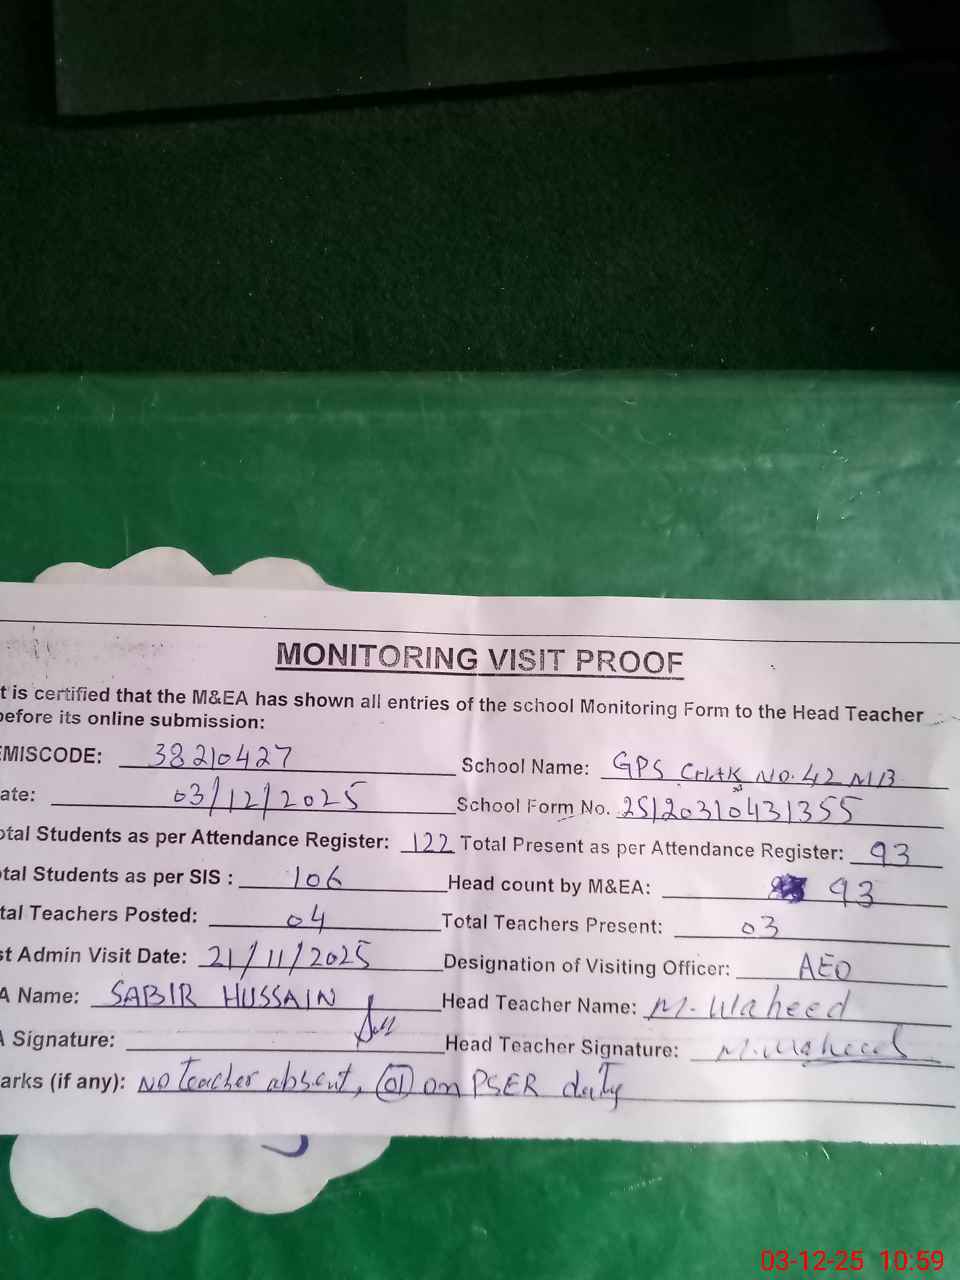 MONITORING VISIT PROOF
t is certified that the M&EA has shown all entries of the school Monitoring Form to the Head Teacher
before its online submission:
EMISCODE: 38210427 School Name: GPS CHAK NO. 42 MB
ate: 03/12/2025 School Form No. 25120310431355
otal Students as per Attendance Register: 122 Total Present as per Attendance Register: 93
tal Students as per SIS : 106 Head count by M&EA: 93
tal Teachers Posted: 04 Total Teachers Present: 03
st Admin Visit Date: 21/11/2025 Designation of Visiting Officer: AEO
A Name: SABIR HUSSAIN Head Teacher Name: M. Waheed
A Signature: Head Teacher Signature: M. Waheed
arks (if any): NO Teacher absent, 01 on PSER duty
03-12-25 10:59